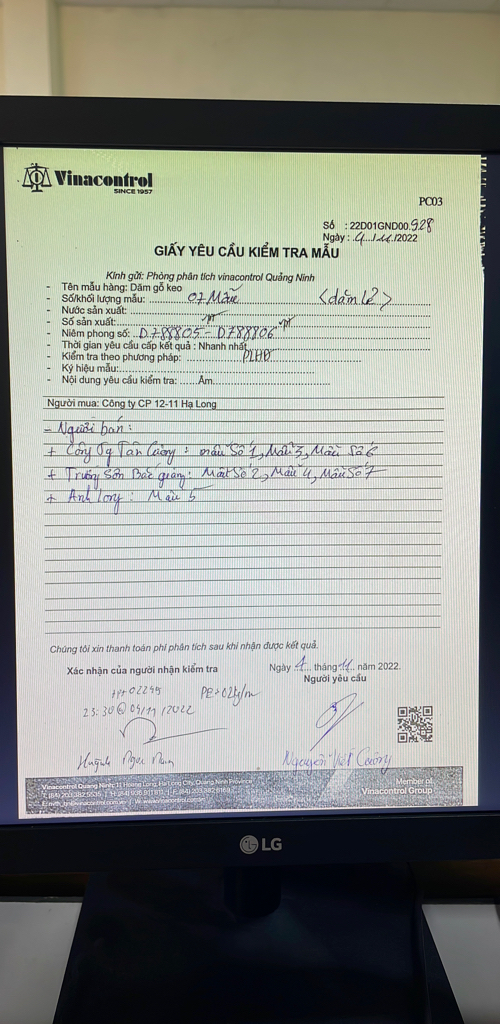 Vinacontrol
SINCE 1957
PC03
Số : 22D01GND00.928
Ngày : 4../11./2022
GIẤY YÊU CẦU KIỂM TRA MẪU
Kính gửi: Phòng phân tích vinacontrol Quảng Ninh
- Tên mẫu hàng: Dăm gỗ keo
- Số/khối lượng mẫu: 07 Mẫu <dăm lẻ>
- Nước sản xuất:
- Số sản xuất:
- Niêm phong số: D788805 - D788806
- Thời gian yêu cầu cấp kết quả : Nhanh nhất
- Kiểm tra theo phương pháp: PLHĐ
- Ký hiệu mẫu:
- Nội dung yêu cầu kiểm tra: Ẩm
Người mua: Công ty CP 12-11 Hạ Long
- Người bán:
+ Công Ty Tân Cường : mẫu Số 1, Mẫu 3, Mẫu Số 6
+ Trường Sơn Bắc giang: Mẫu Số 2, Mẫu 4, Mẫu Số 7
+ Anh Long : Mẫu 5
Chúng tôi xin thanh toán phí phân tích sau khi nhận được kết quả.
Xác nhận của người nhận kiểm tra
Ngày 4 tháng 11 năm 2022
Người yêu cầu
23:30 @ 04/11/2022
Huỳnh Ngọc Nam
Nguyễn Việt Cường
Vinacontrol Quảng Ninh: 11 Hoàng Long, Ha Long City, Quang Ninh Province
Member of
Vinacontrol Group
LG